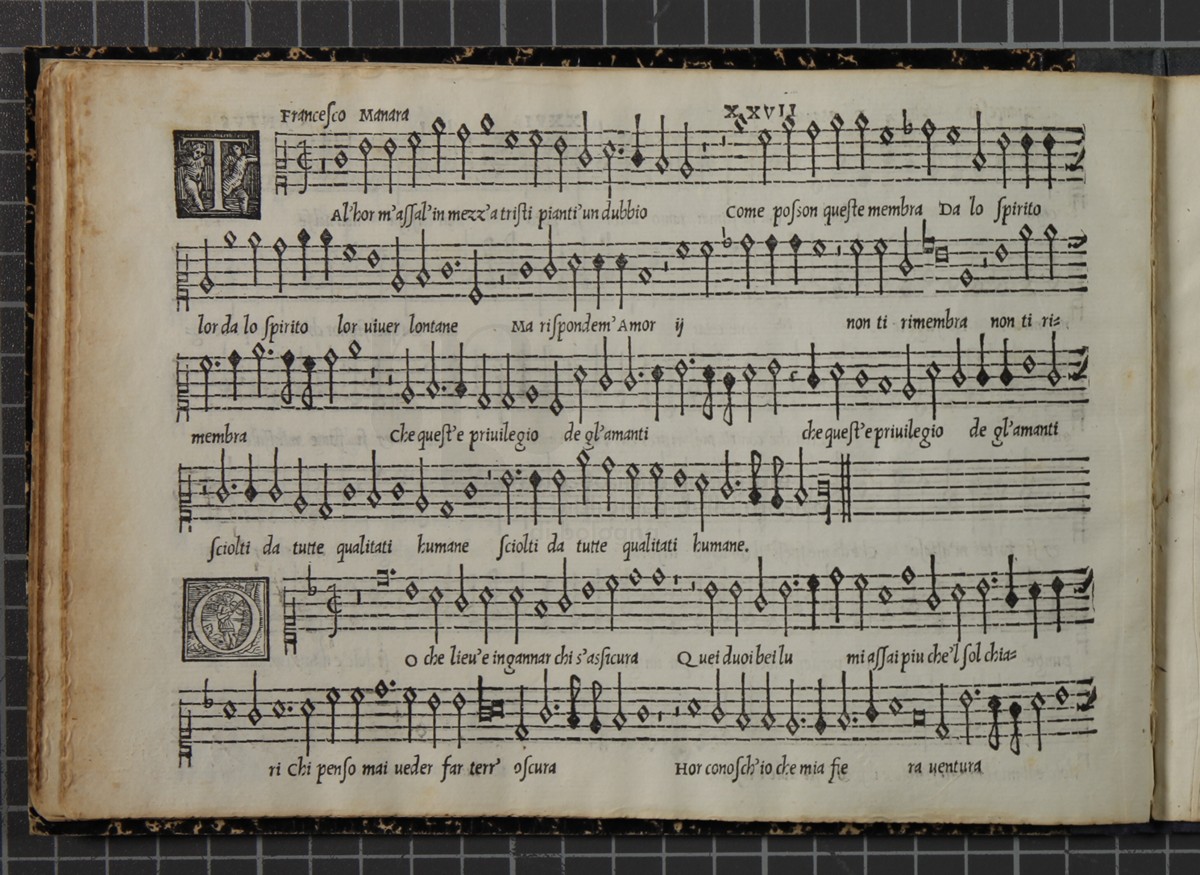 Franceſco Manara XXVII
T Al'hor m'aſſal'in mezz'a triſti pianti'un dubbio Come poſson queſte membra Da lo ſpirito
lor da lo ſpirito lor uiuer lontane Ma riſpondem' Amor ij non ti rimembra non ti ri=
membra Che queſt'e priuilegio de gl'amanti che queſt'e priuilegio de gl'amanti
ſciolti da tutte qualitati humane ſciolti da tutte qualitati humane.
O O che lieu'e ingannar chi s'aſsicura Quei duoi bei lu mi aſſai piu che'l ſol chia=
ri Chi penſo mai ueder far terr' oſcura Hor conoſch'io che mia fie ra uentura